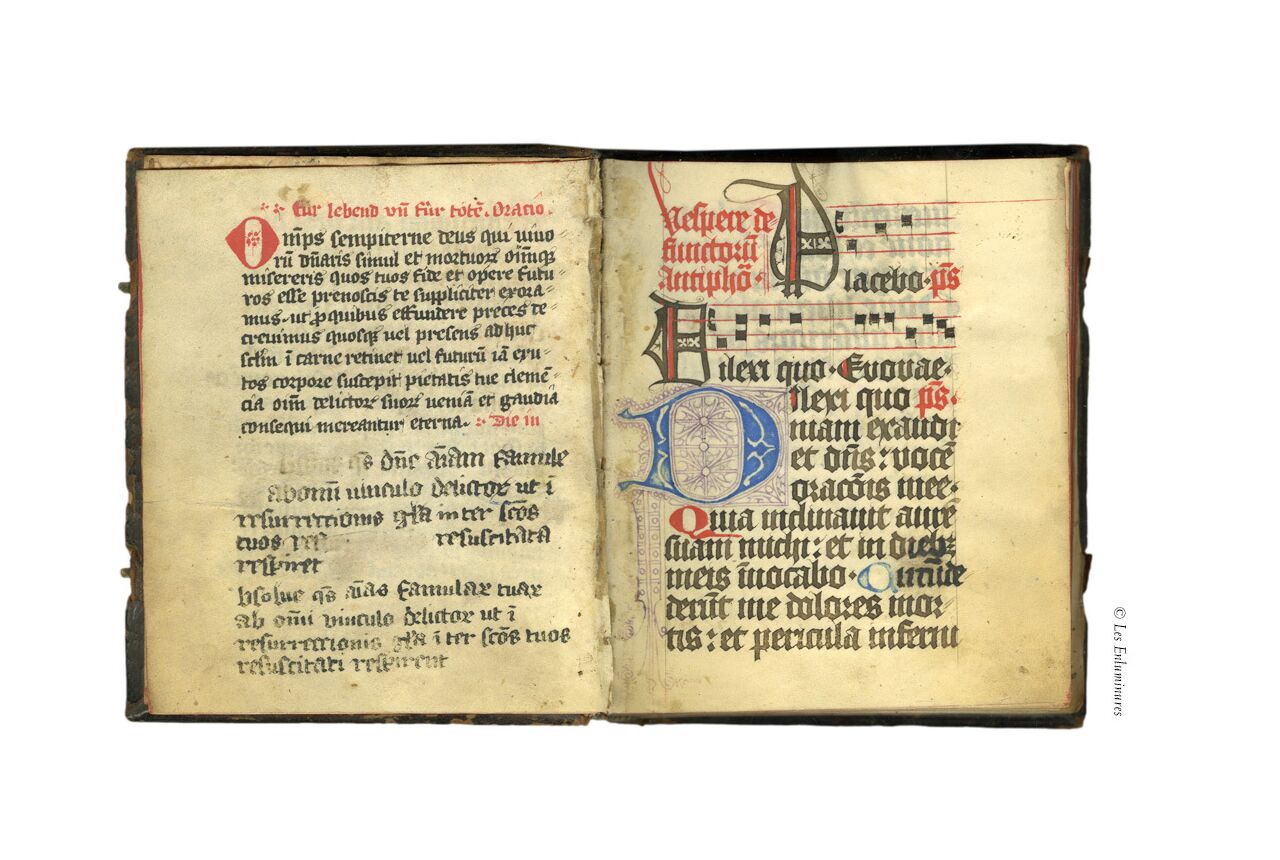 für lebend vñ für totē. Oratio.
Om̄ps sempiterne deus qui uiuo
rū dn̄aris simul et mortuoꝝ oīm̄qꝫ
misereris quos tuos fide et opere futu-
ros esse prenoscis te suppliciter exora-
mus. ut ꝓ quibus effundere preces de-
creuimus quosqꝫ uel presens adhuc
sclm̄ ī carne retinet uel futurū iā exu-
tos corpore suscepit pietatis tue clemē-
cia oīm̄ delictoꝝ suoꝝ ueniā et gaudia
consequi mereantur eterna. Die in
qs dn̄e aīam famule
ab omni uinculo delictoꝝ ut ī
resurrectionis gl̄a inter scōs
tuos resuscitata
respiret
bsolue qs aīas famulaꝝ tuaꝝ
ab om̄i vinculo delictoꝝ ut ī
resurrectionis gl̄a ī ter scōs tuos
resuscitati respirent
Vespere de
functorū
Antiphō.
Placebo. ps̄
Dilexi quo. Euouae.
Dilexi quo ps̄.
niam exaudi
et dn̄s: vocē
oracōis mee.
Quia inclinauit aurē
suam michi: et in diebꝫ
meis īuocabo. Circūde
derūt me dolores mor-
tis: et pericula inferni
© Les Enluminures